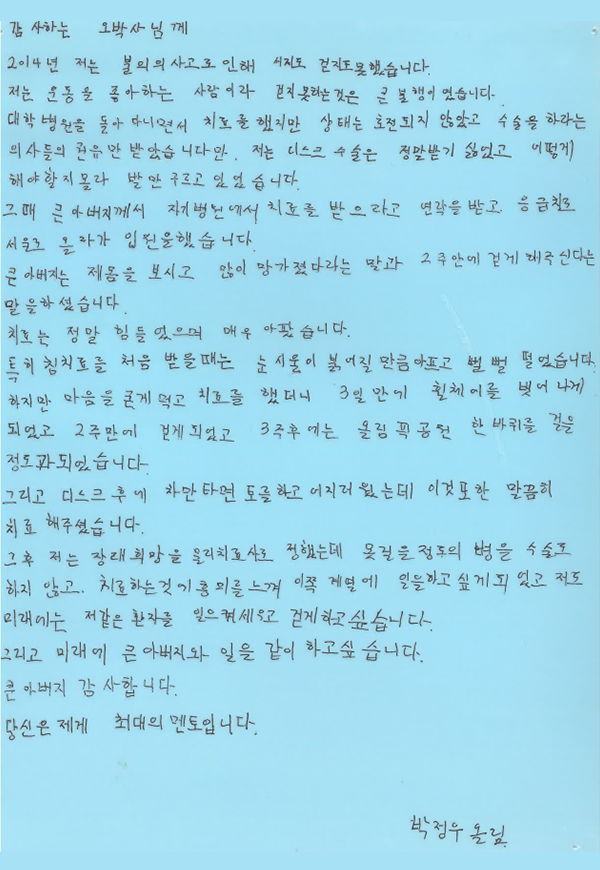 감사하는 오박사님께
2014년 저는 불의의사고로 인해 서지도 걷지도못했습니다.
저는 운동을 좋아하는 사람이라 걷지못하는것은 큰 불행이였습니다.
대학병원을 돌아다니면서 치료를했지만 상태는 호전되지 않았고 수술을하라는
의사들의 권유만받았습니다만. 저는 디스크 수술은 정말받기 싫었고 어떻게
해야할지몰라 발만구르고있었습니다.
그때 큰아버지께서 자기병원에서치료를 받으라고 연락을받고. 응급치료
서울로 올라가 입원을했습니다.
큰아버지는 제몸을 보시고 많이망가졌다라는 말과 2주안에 걷게 해주신다는
말을하셨습니다.
치료는 정말 힘들었으며 매우 아팠습니다.
특히 침치료를 처음 받을때는 눈시울이 붉어질만큼아프고 뻘뻘 떨었습니다.
하지만 마음을 굳게먹고 치료를 했더니 3일만에 휠체어를 벗어나게
되었고 2주만에 걷게되었고 3주후에는 올림픽공원 한바퀴를 걸을
정도과되었습니다.
그리고 디스크후에 차만타면 토를하고어지러웠는데 이것또한 말끔히
치료해주셨습니다.
그후 저는 장래희망을 물리치료사로 정했는데 못걸을정도의 병을 수술도
하지 않고. 치료하는것에흥미를느껴 이쪽 계열에 일을하고싶게되었고 저도
미래에는 저같은환자를 일으켜세우고 걷게하고싶습니다.
그리고 미래에 큰아버지와 일을 같이 하고싶습니다.
큰아버지 감사합니다.
당신은제게 최대의멘토입니다.
박정우 올림.